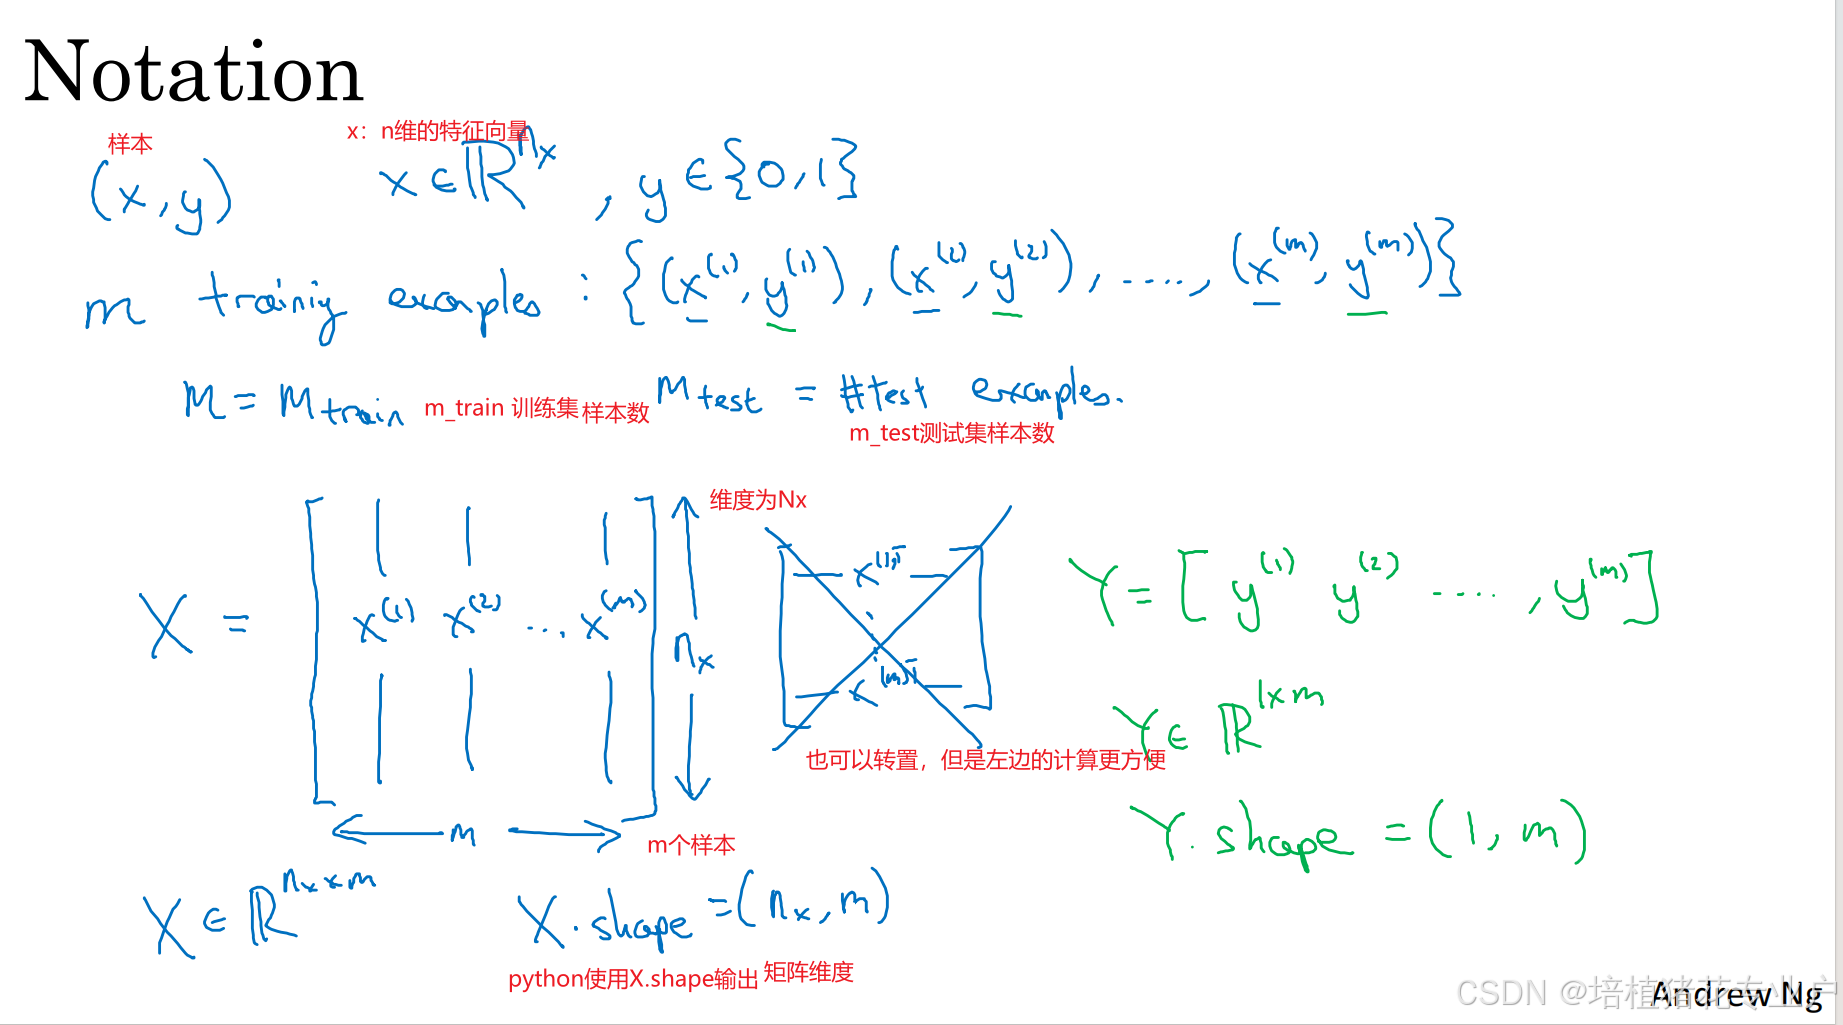 Notation
样本
x：n维的特征向量
(x,y) x∈ℝ^{n_x}, y∈{0,1}
m training examples : {(x^{(1)},y^{(1)}), (x^{(2)},y^{(2)}), ...., (x^{(m)},y^{(m)})}
M = M_{train} m_train 训练集样本数 M_{test} = #test examples.
m_test测试集样本数
维度为Nx
X = [x^{(1)} x^{(2)} ... x^{(m)}] n_x
x^{(1)T}
⋮
x^{(m)T}
也可以转置，但是左边的计算更方便
m
m个样本
X∈ℝ^{n_x×m} X.shape=(n_x,m)
python使用X.shape输出 矩阵维度
Y = [y^{(1)} y^{(2)} ...., y^{(m)}]
Y∈ℝ^{1×m}
Y.shape = (1,m)
Andrew Ng
CSDN @培植猪花专业户